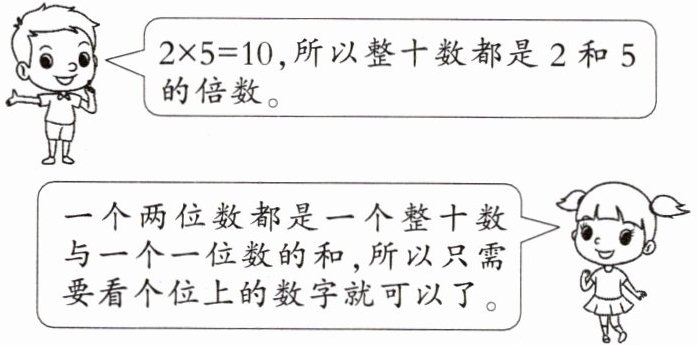 2×5=10,所以整十数都是2和5
的倍数。
一个两位数都是一个整十数
与一个一位数的和,所以只需
要看个位上的数字就可以了。